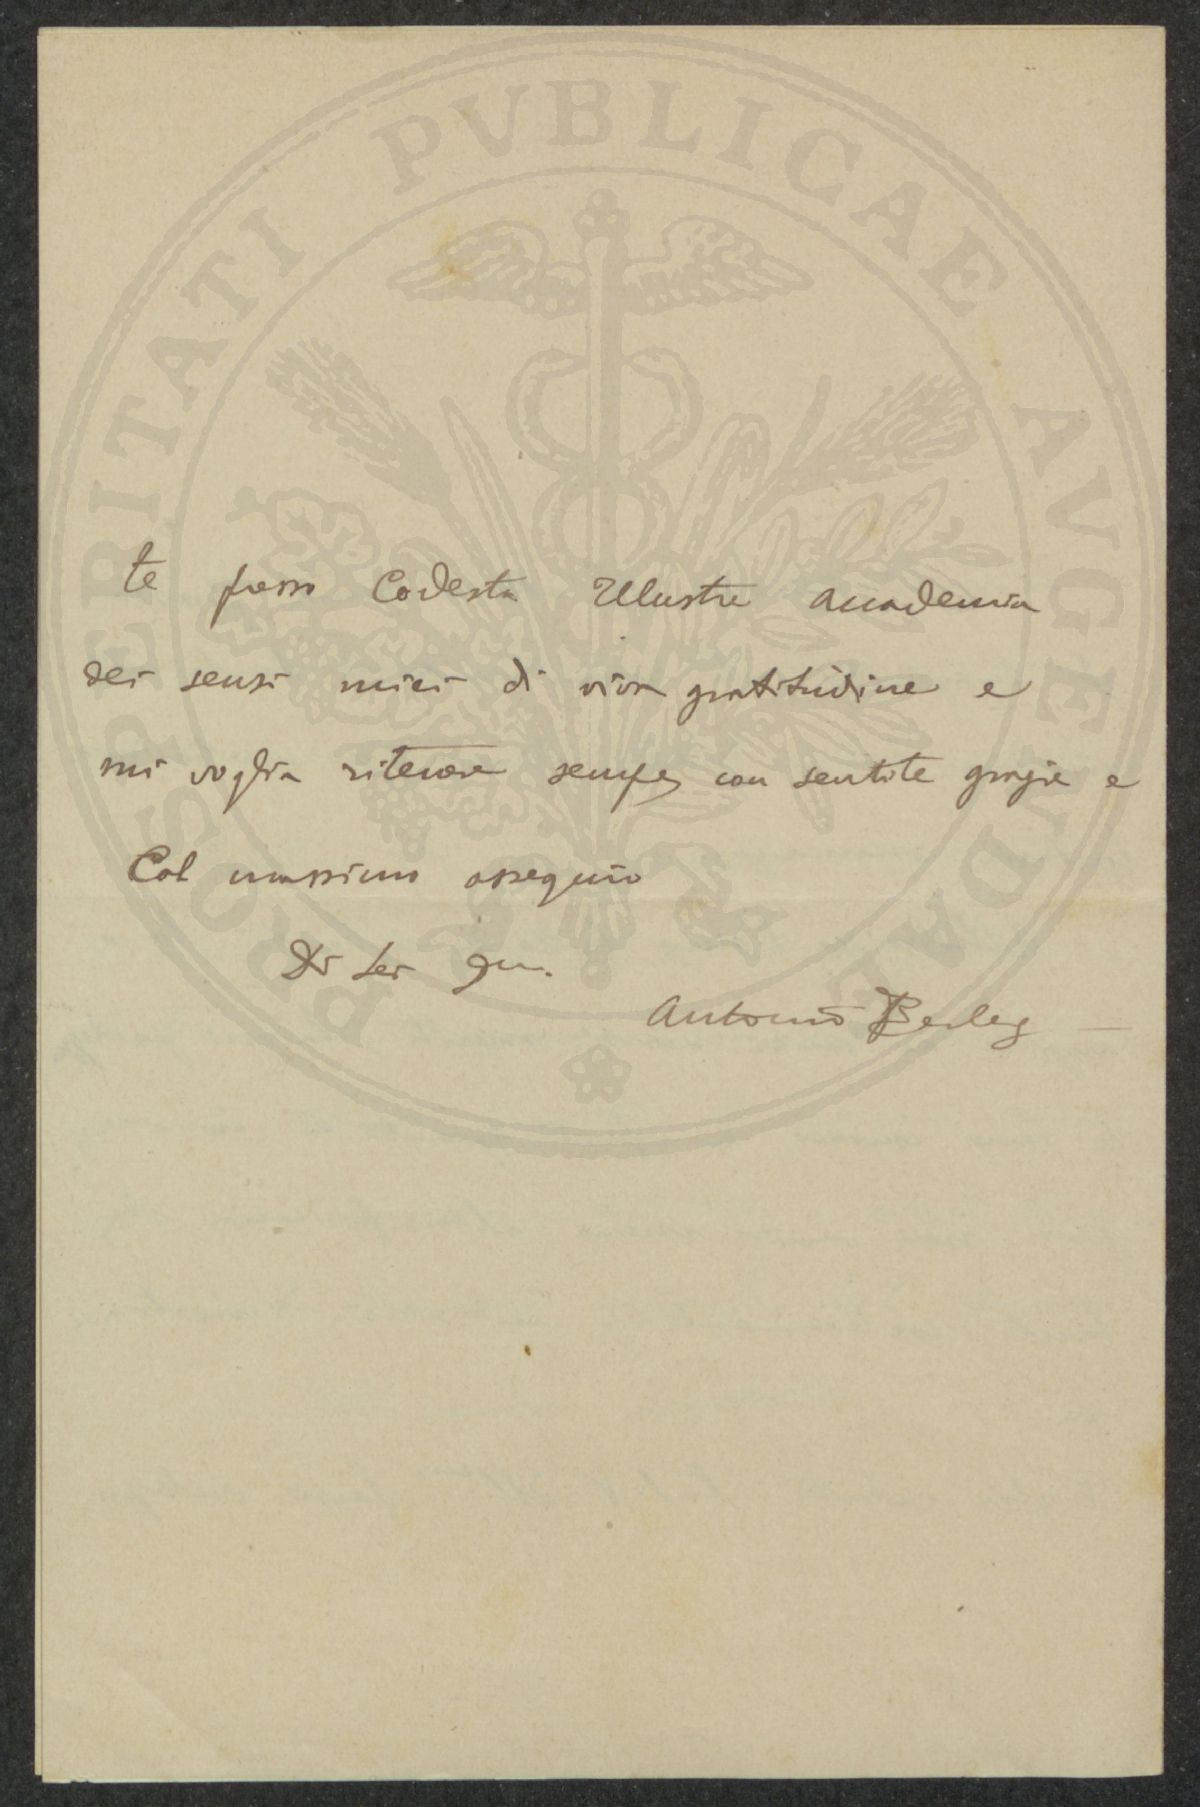 te presso Codesta Illustre Accademia
dei sensi miei di viva gratitudine e
mi voglia ritenere sempre con sentite grazie e
Col massimo ossequio
Di Lei
Antonio
PROSPERITATI PUBLICAE AUGENDAE